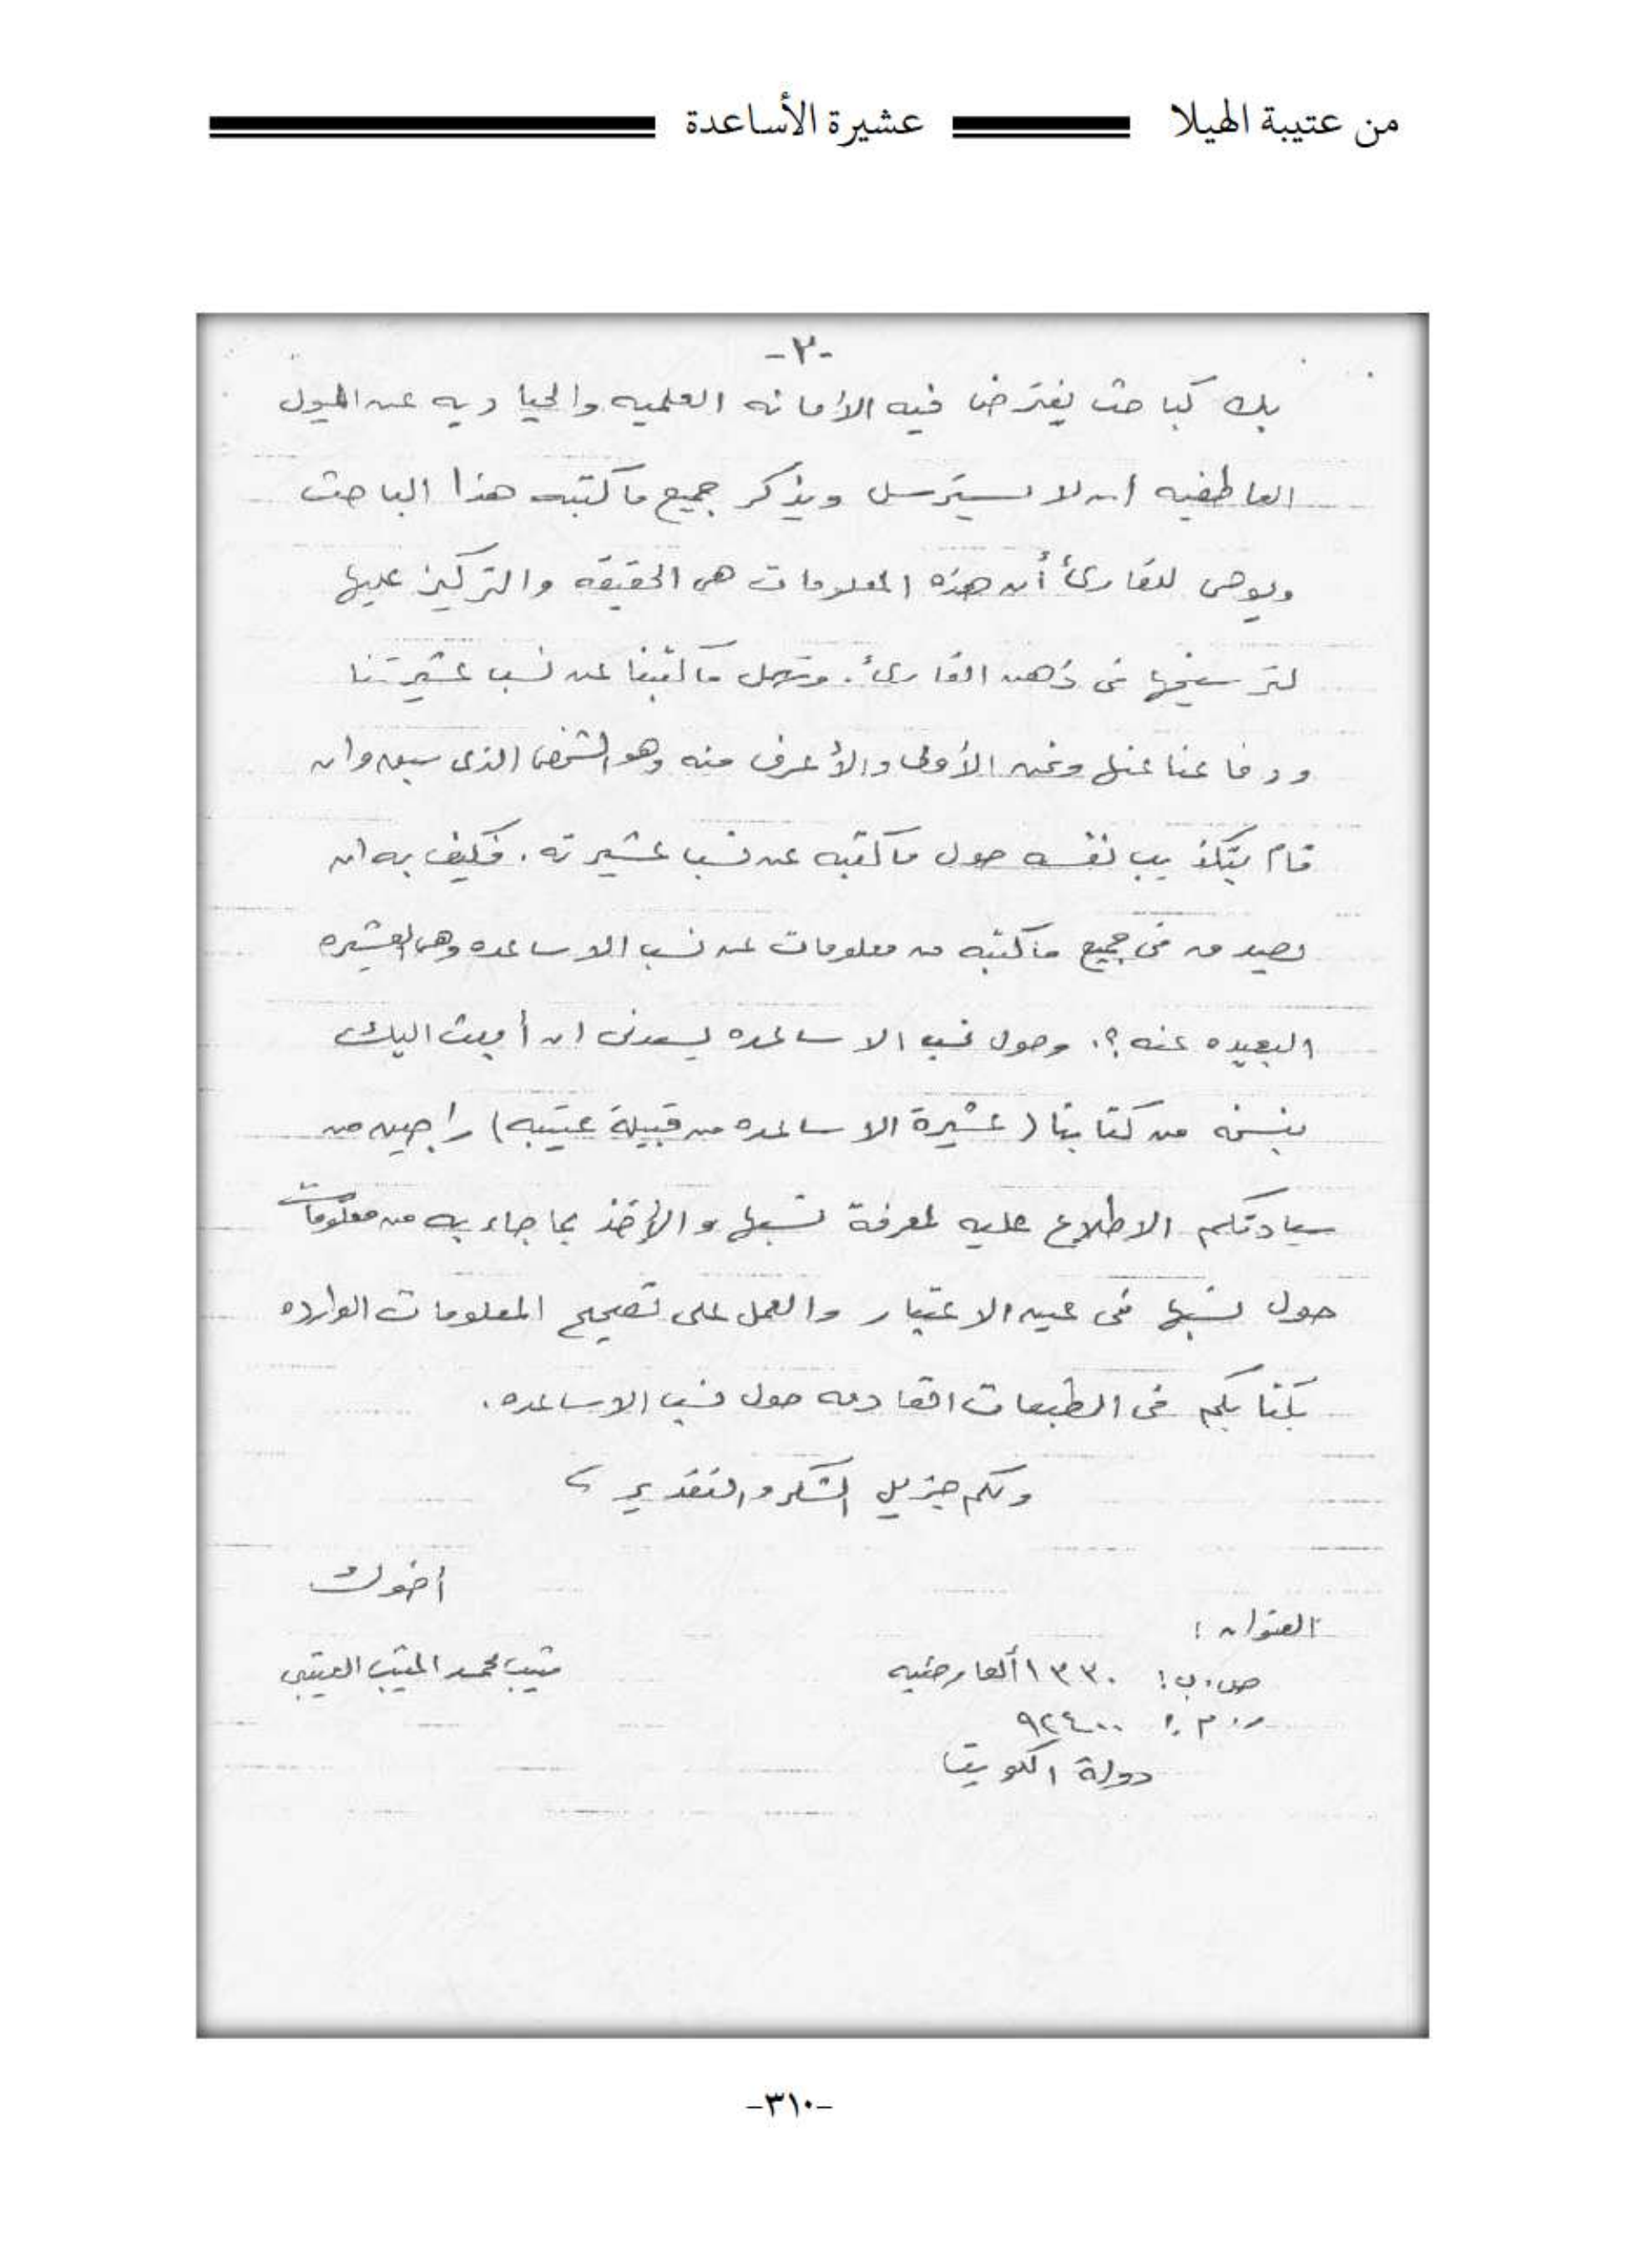 من عتيبة الهيلا عشيرة الأساعدة
-٢-
بك كباحث يفترض فيه الأمانه العلميه والحياديه عن الميول
العاطفيه ان لا يسترسل ويذكر جميع ما كتبه هذا الباحث
ويوحى للقارئ أن هذه المعلومات هى الحقيقه والتركيز عليها
لترسيخها فى ذهن القارئ. وتهمل ما كتبنا عن نسب عشيرتنا
ودفاعنا عنها ونحن الأولى والأعرف منه وهو الشخص الذى سبق وان
قام بتكذيب نفسه حول ما كتبه عن نسب عشيرته. فكيف به ان
يصدق فى جميع ما كتبه من معلومات عن نسب الاساعده وهى العشيره
البعيده عنه؟. وحول نسب الاساعده يسعدنى ان أبعث اليك
بنسخه من كتابنا (عشيرة الاساعده من قبيلة عتيبه) راجين من
سيادتكم الاطلاع عليه لمعرفة نسبها والأخذ بما جاء به من معلومات
حول نسبها فى عين الاعتبار والعمل على تصحيح المعلومات الوارده
بكتابكم فى الطبعات القادمه حول نسب الاساعده.
ولكم جزيل الشكر والتقدير
أخوك
العنوان:
متيب محمد المتيب العتيبي
ص.ب: ١٣٣٠ ألعارضيه
ر.م: ٩٢٤٠٠
دولة الكويت
-٣١٠-